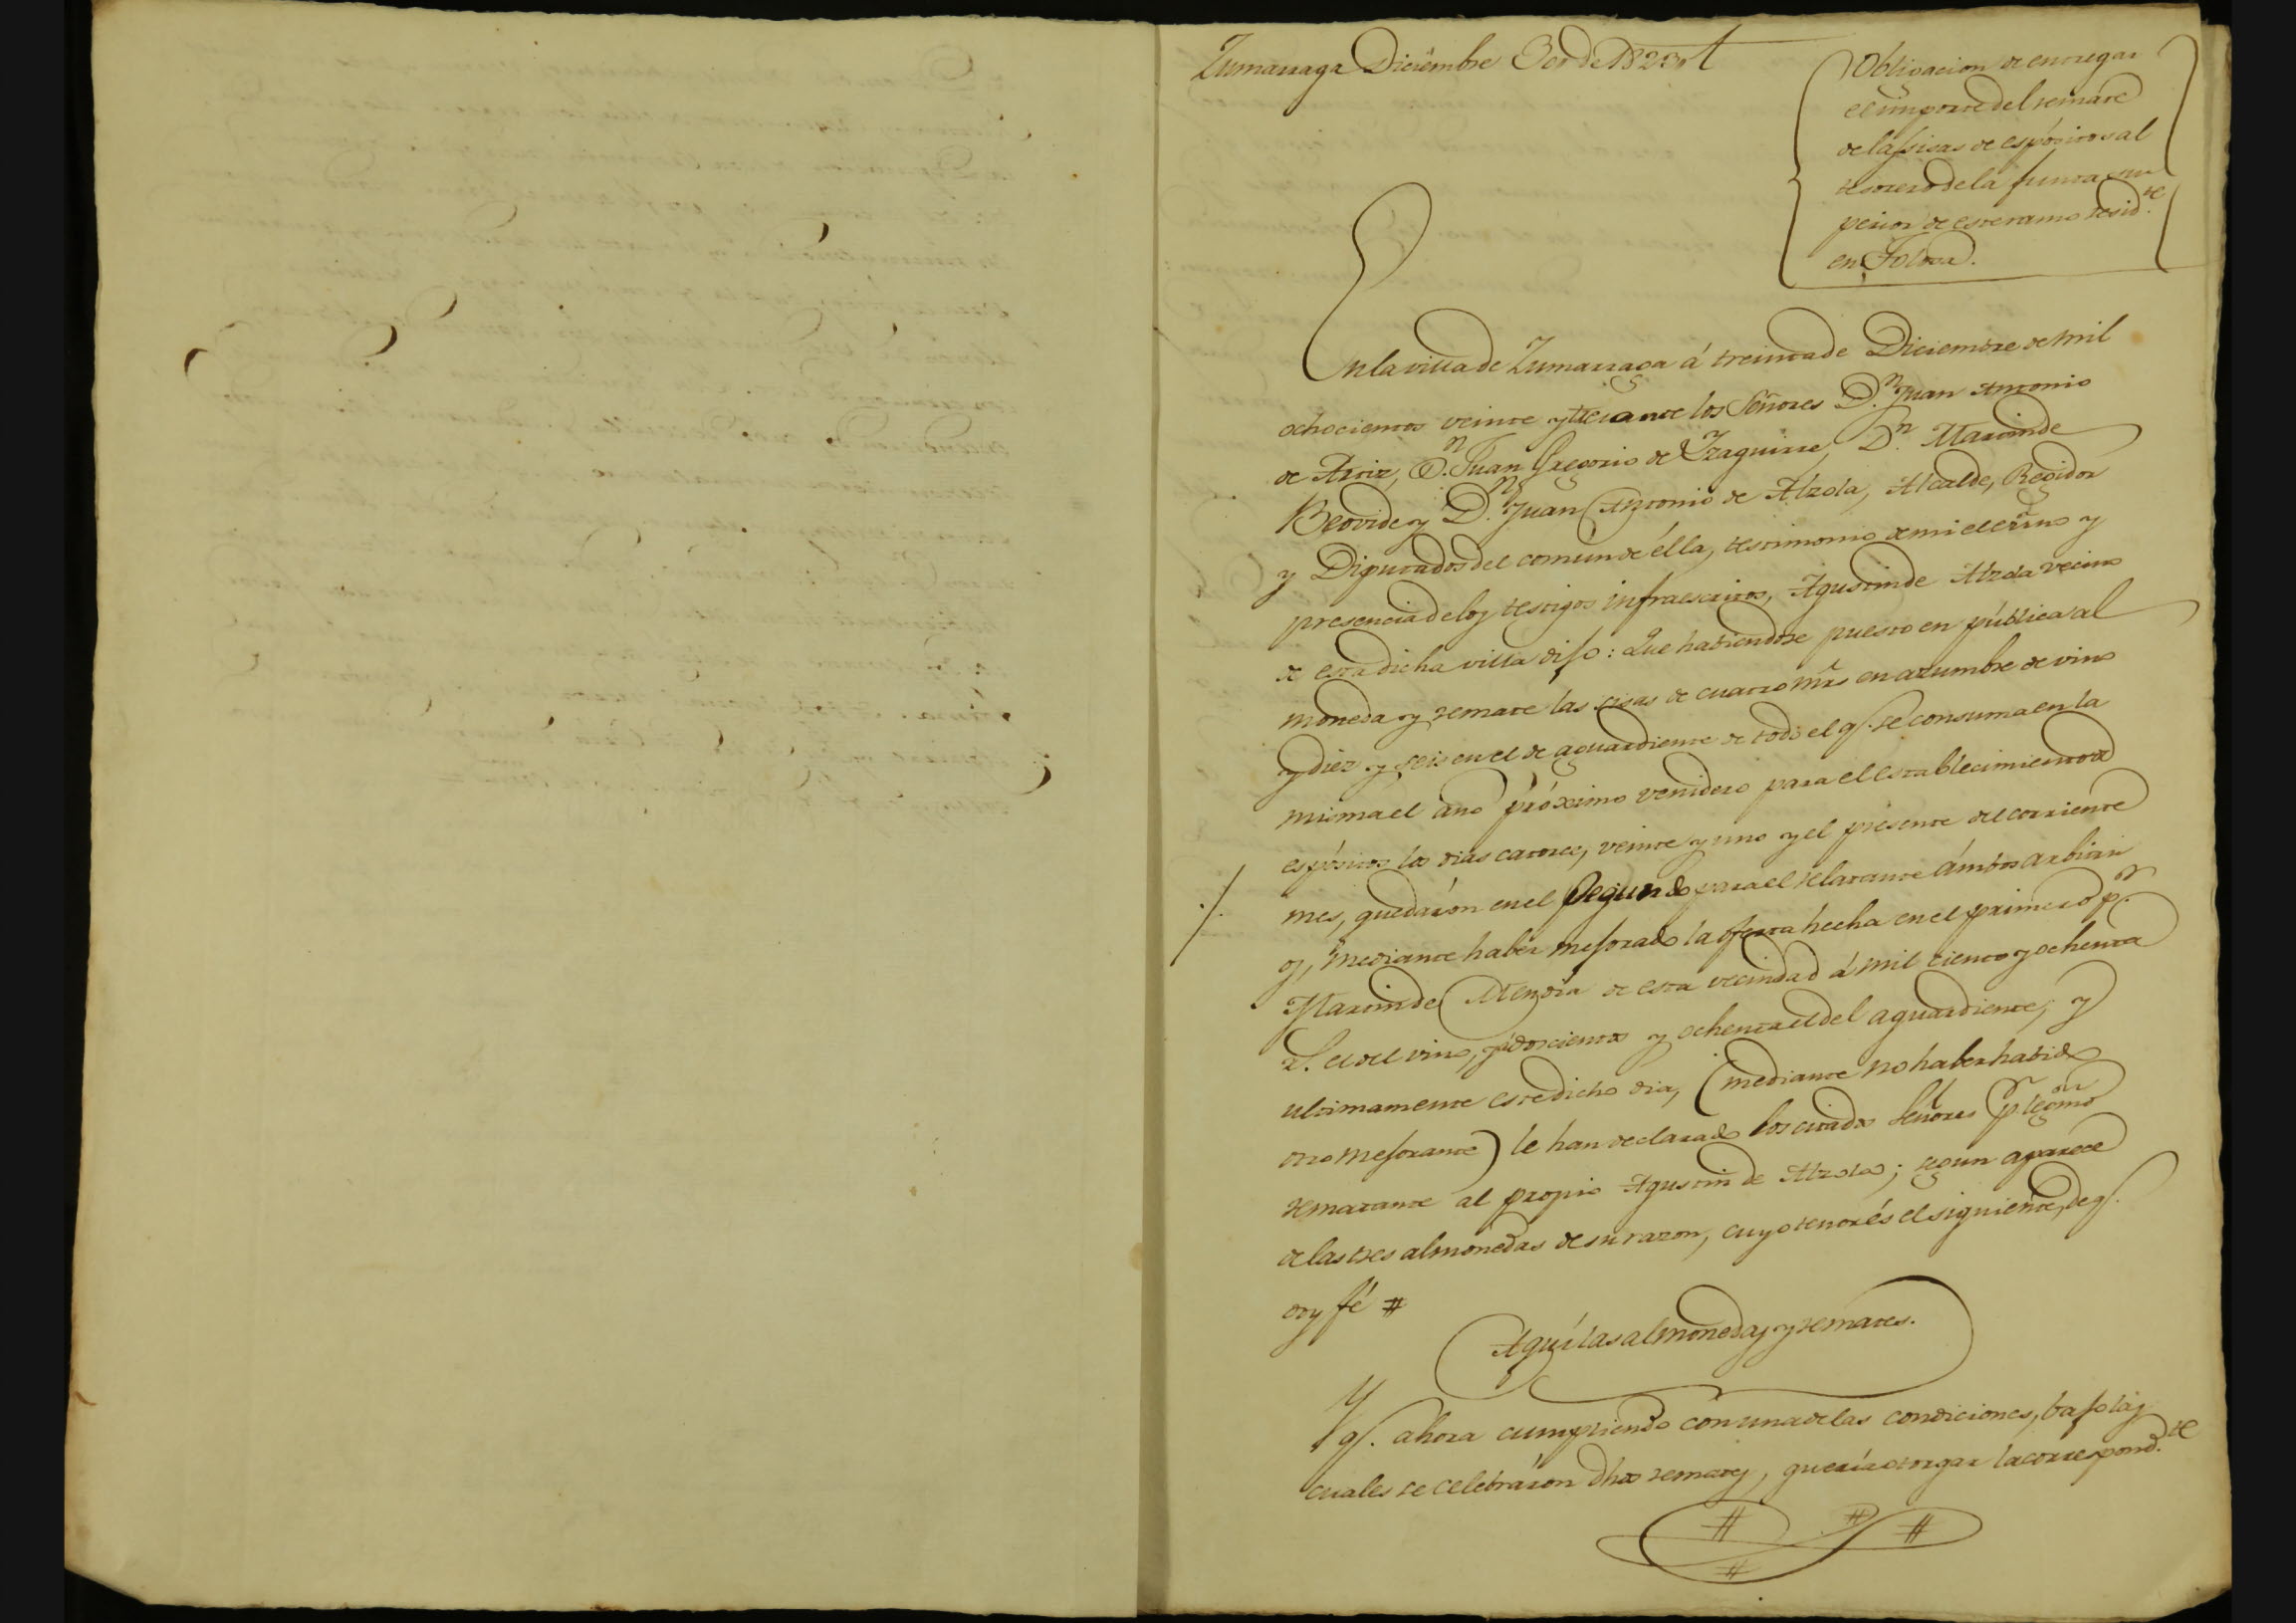 Zumarraga Diciembre 30 de 1823
Obligacion de entregar
el importe del remate
de las sisas de espósitos al
tesorero de la Junta su-
perior de este ramo resid.te
en Tolosa.
En la villa de Zumarraga á treinta de Diciembre de mil
ochocientos veinte y tres ante los Señores D.n Juan Antonio
de Aroiz, D.n Juan Gregorio de Yzaguirre, D.n Martin de
Beovide y D.n Juan Antonio de Alzola, Alcalde, Regidor
y Diputados del comun de élla, testimonio de mi el esno y
presencia de los testigos infraescritos, Agustin de Alzola vecino
de esta dicha villa dijo: Que habiendose puesto en pública al
moneda y remate las sisas de cuatro mrs en azumbre de vino
y diez y seis en el de aguardiente de todo el q.e se consuma en la
misma el año próximo venidero para el establecimiento de
espósitos los dias catorce, veinte y uno y el presente del corriente
mes, quedáron en el segundo para el relatante ámbos arbitrios
y, mediante haber mejorado la oferta hecha en el primero p.r
Martin de Mendia de esta vecindad á mil ciento y ochenta
r.s el del vino, y doscientos y ochenta el del aguardiente; y
ultimamente este dicho dia, (mediante no haber habido
otro mejorante) le han declarado los citados Señores p.r legmo
rematante al propio Agustin de Alzola; segun aparece
de las tres almonedas de su razon, cuyo tenor és el siguiente, de q.e
doy fé #
Aquí las almonedas y remates.
Y
q.e ahora cumpliendo con una de las condiciones, bajo las
cuales se celebráron dhos remates, quería otorgar la correspond.te
# # #
#